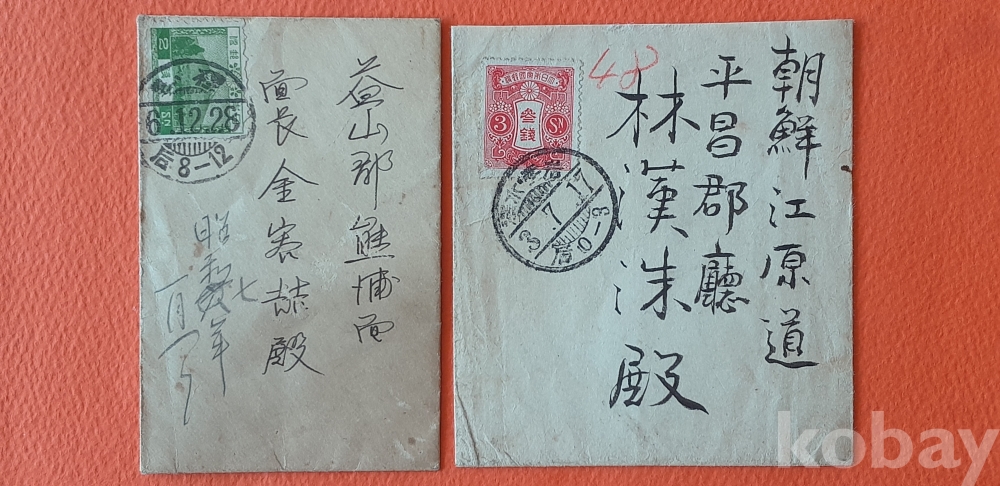 益山郡熊浦面
面長金容喆殿
昭和七年
一月
6.12.28
8-12
朝鮮江原道
平昌郡廳
林漢洙殿
48
大日本帝國郵便
3
参銭
3 Sn
3.7.17
0-3
kobay